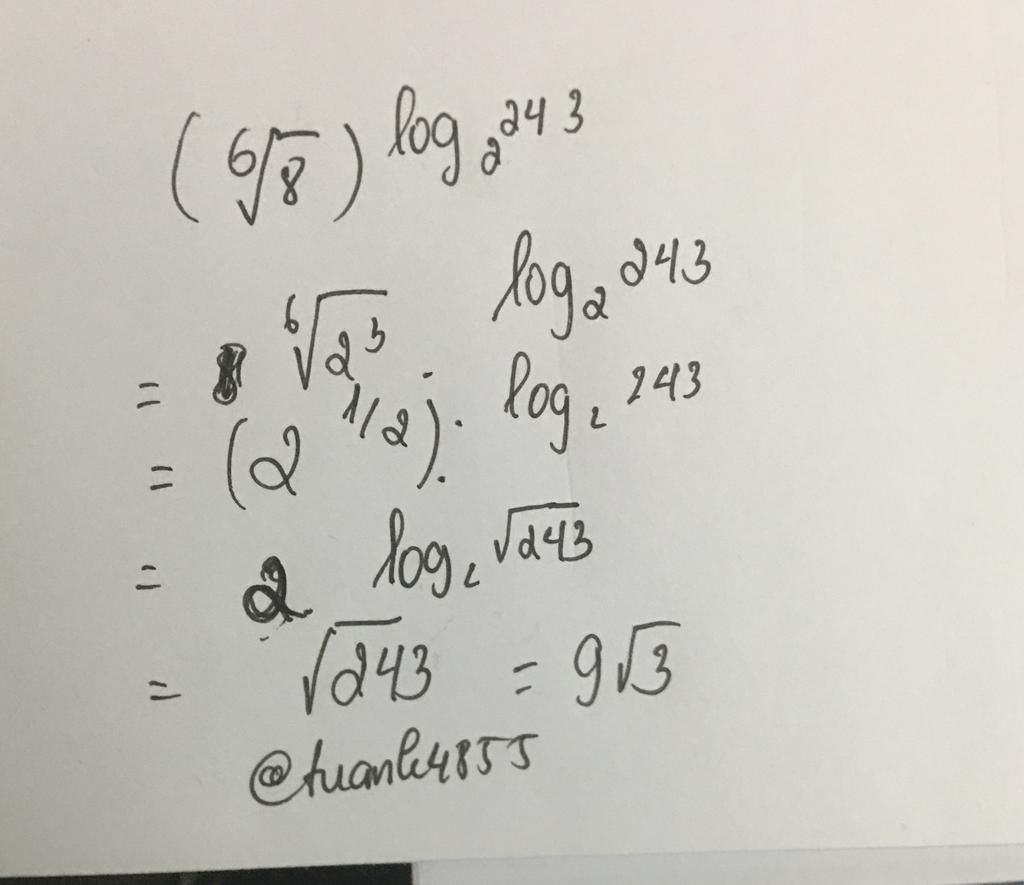 (⁶√8)^log₂243
= ⁶√2³ log₂243
= (2^1/2). log₂243
= 2 log₂√243
= √243 = 9√3
@tuanh4855